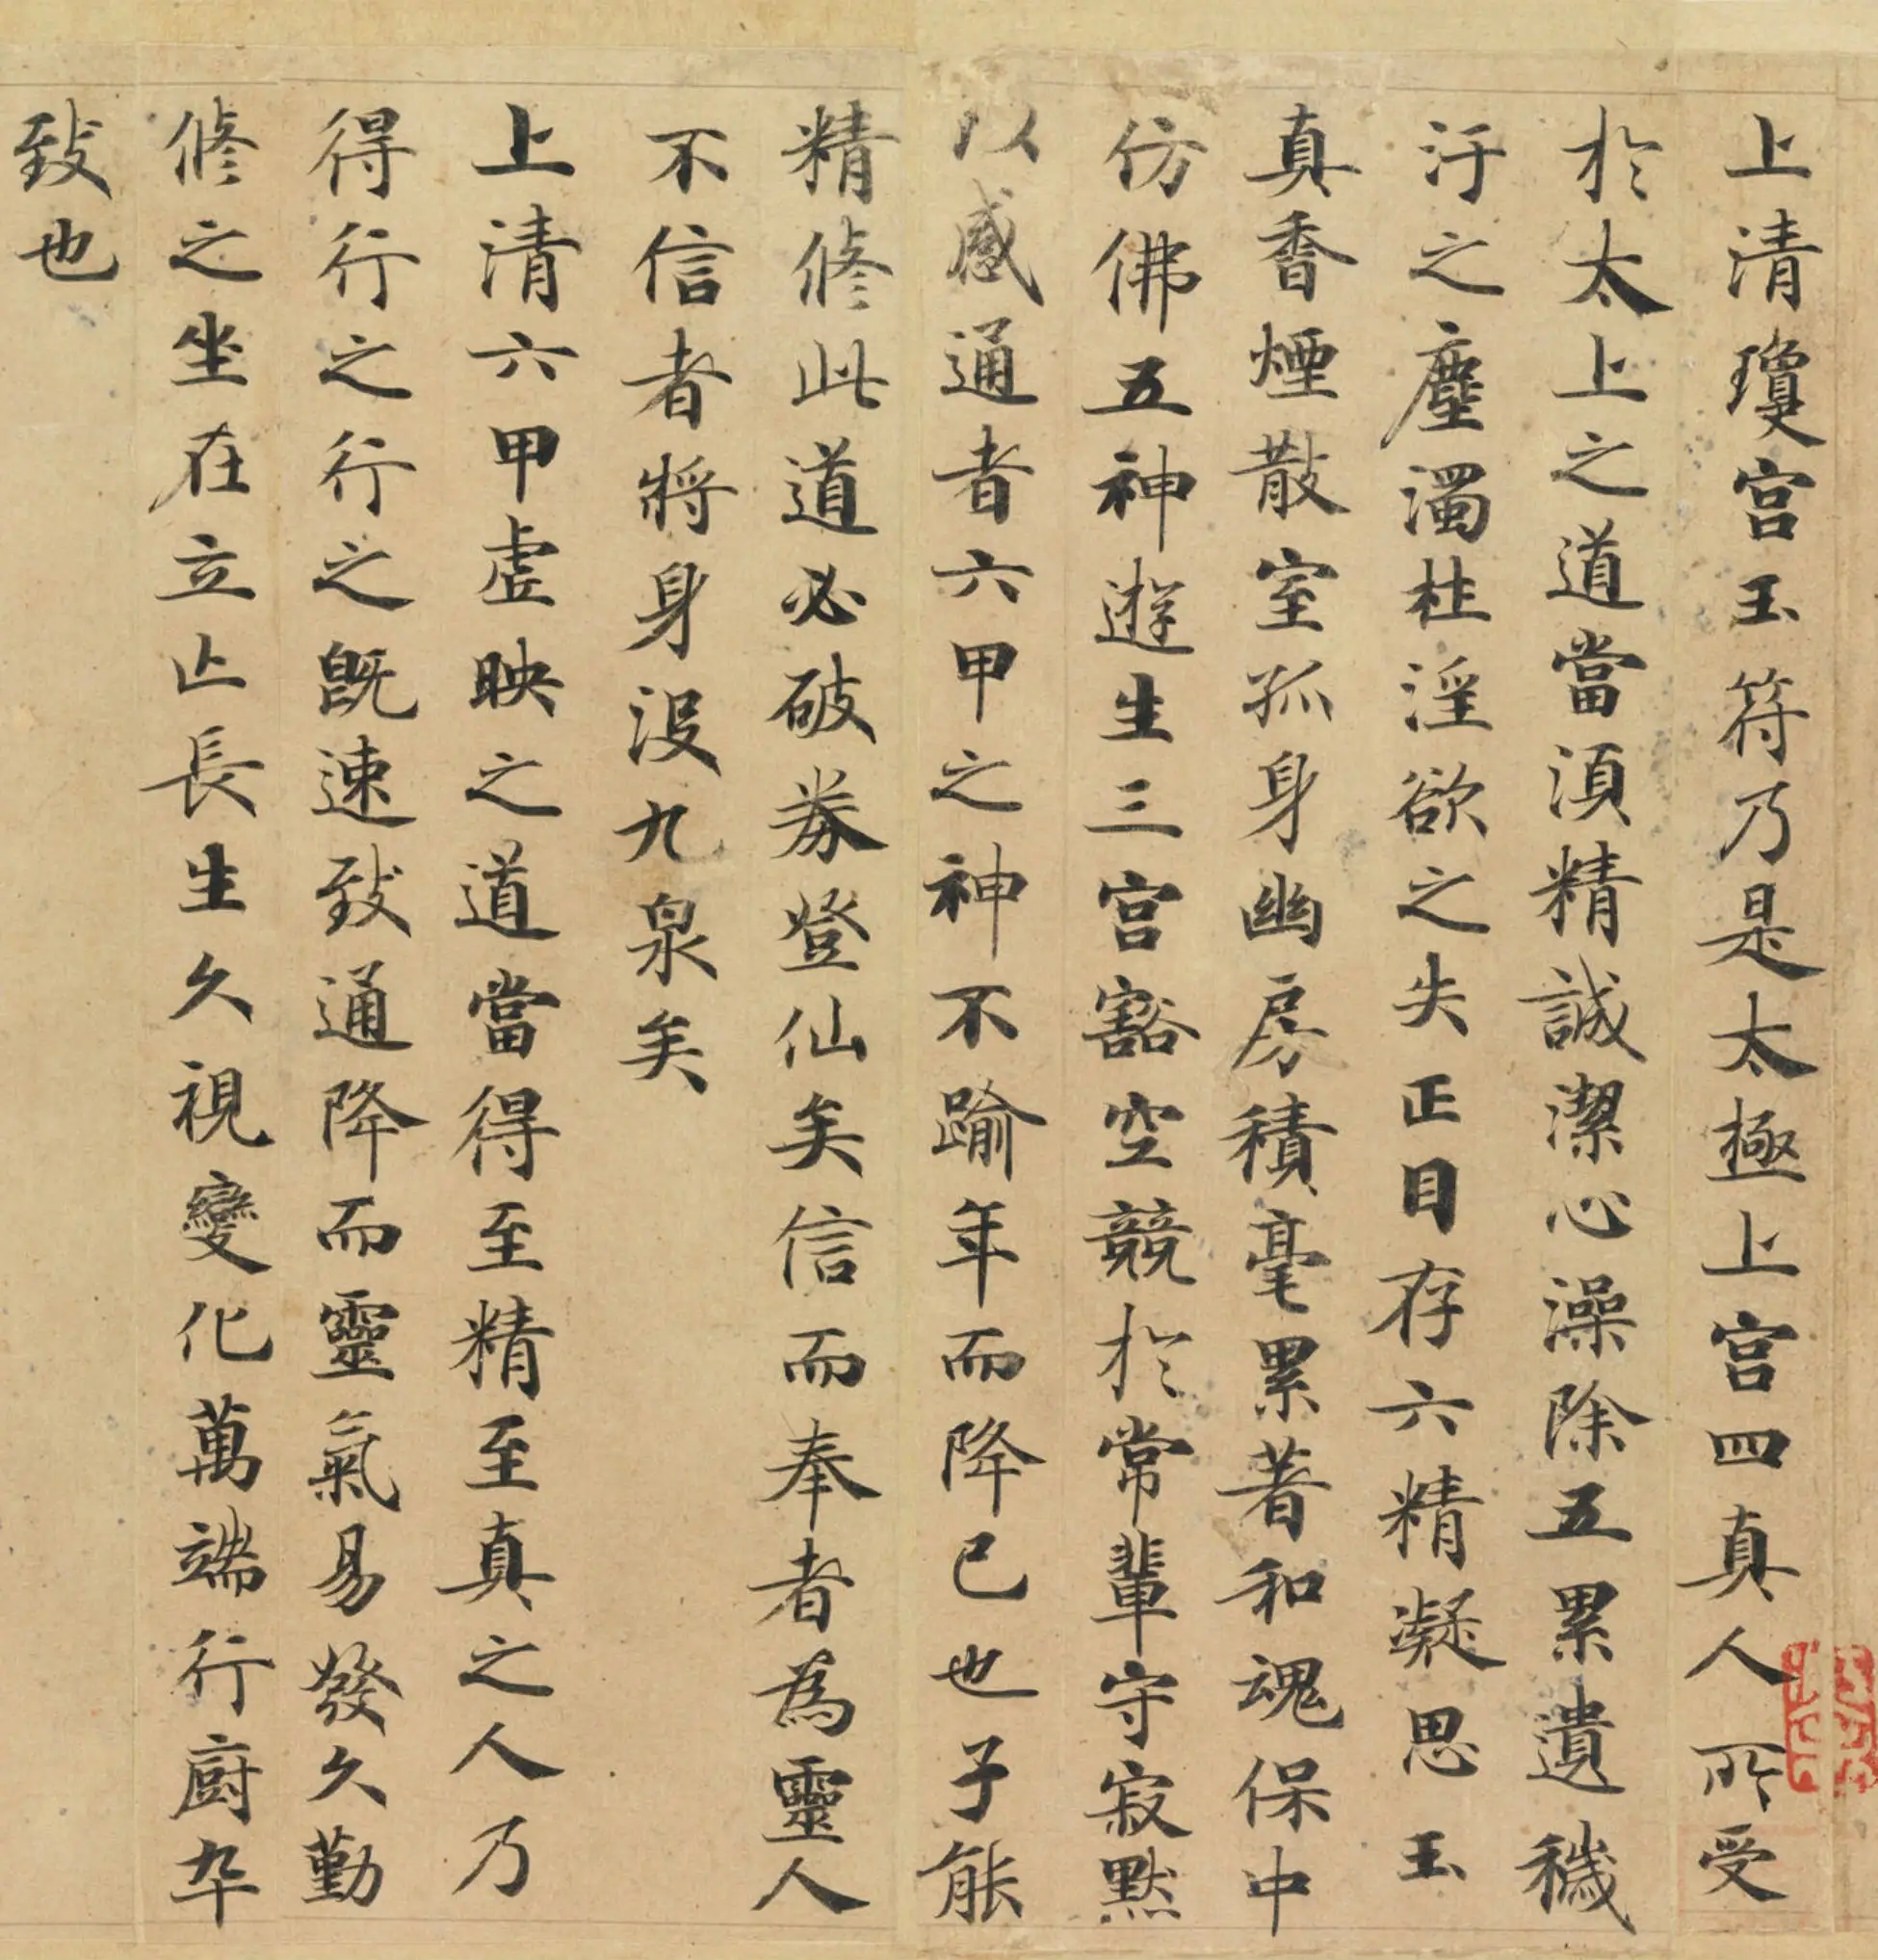 上清瓊宮玉符乃是太極上宮四真人所受
於太上之道當湏精誠潔心澡除五累遺穢
汙之塵濁杜淫欲之失正目存六精凝思玉
真香煙散室孤身幽房積毫累著和魂保中
仿佛五神遊生三宮豁空競於常輩守寂默
以感通者六甲之神不踰年而降已也子能
精修此道必破券登仙矣信而奉者為靈人
不信者將身沒九泉矣
上清六甲虛映之道當得至精至真之人乃
得行之行之既速致通降而靈氣易發久勤
修之坐在立亡長生久視變化萬端行廚卒
致也